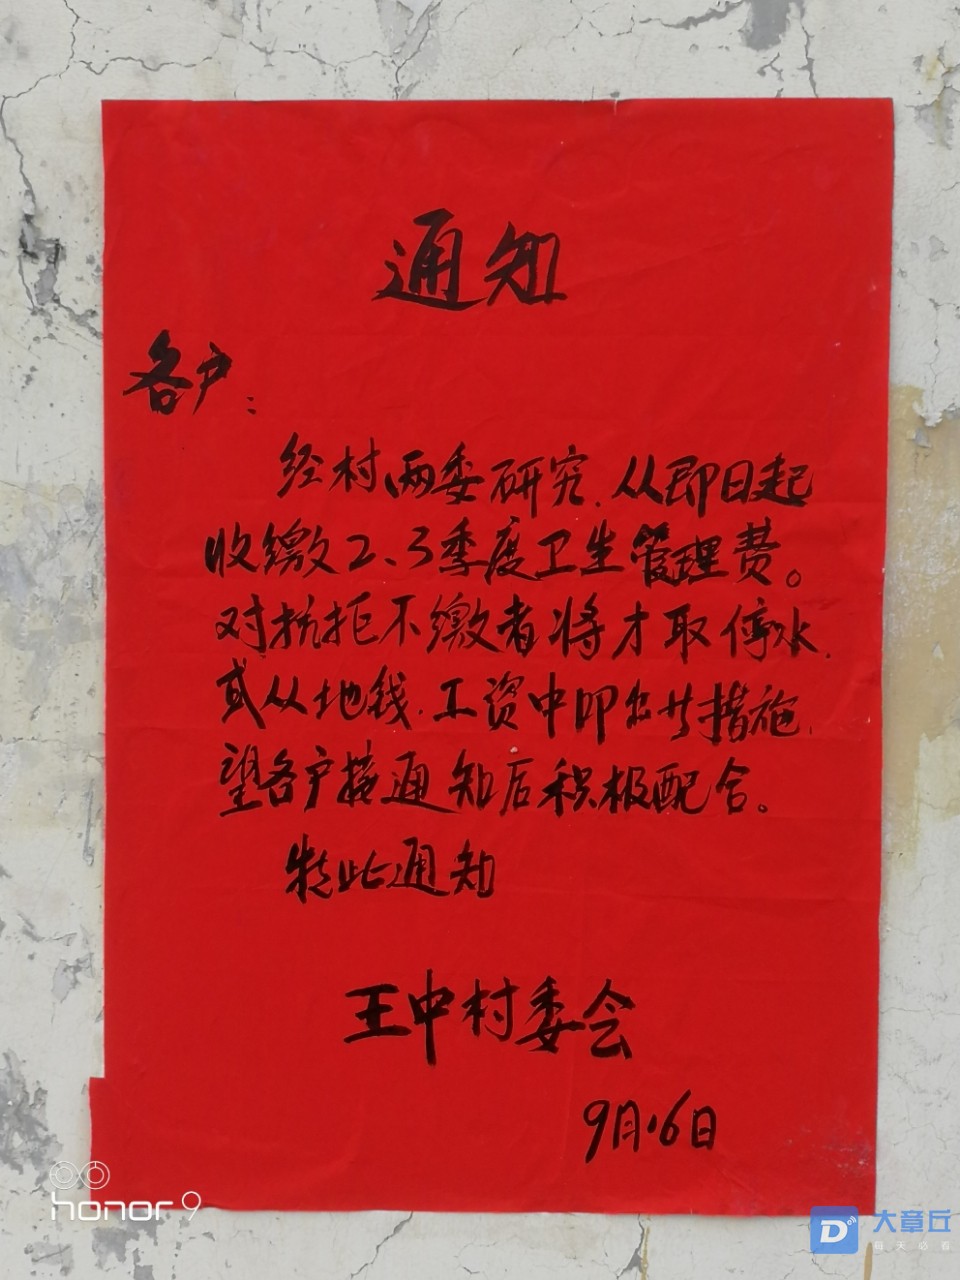 通知
各户：
经村两委研究.从即日起
收缴2、3季度卫生管理费。
对抗拒不缴者将才取停水.
或从地钱.工资中扣出等措施.
望各户接通知后积极配合。
特此通知
王中村委会
9月16日
honor 9
大章丘
每天必看